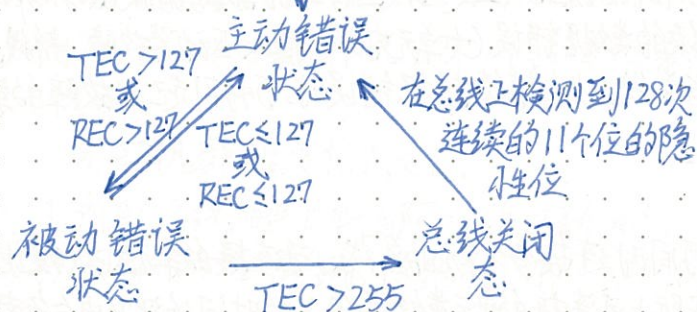 主动错误
状态
TEC>127
或
REC>127
TEC≤127
或
REC≤127
在总线上检测到128次
连续的11个位的隐
性位
被动错误
状态
TEC>255
总线关闭
态